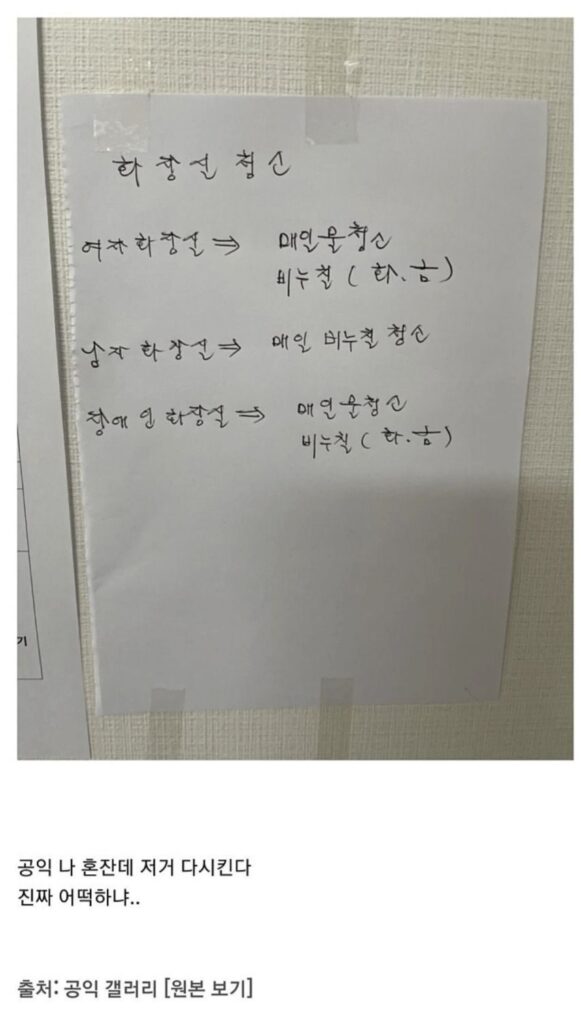 화장실 청소
여자화장실 ⇒ 매일물청소
비누칠 (화.금)
남자 화장실 ⇒ 매일 비누칠 청소
장애인화장실 ⇒ 매일물청소
비누칠 (화.금)
기
공익 나 혼잔데 저거 다시킨다
진짜 어떡하냐..
출처: 공익 갤러리 [원본 보기]